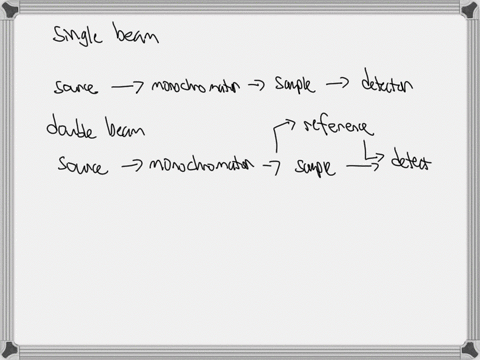 single beam
source → monochromator → sample → detector
double beam
→ reference
source → monochromator → sample → detect